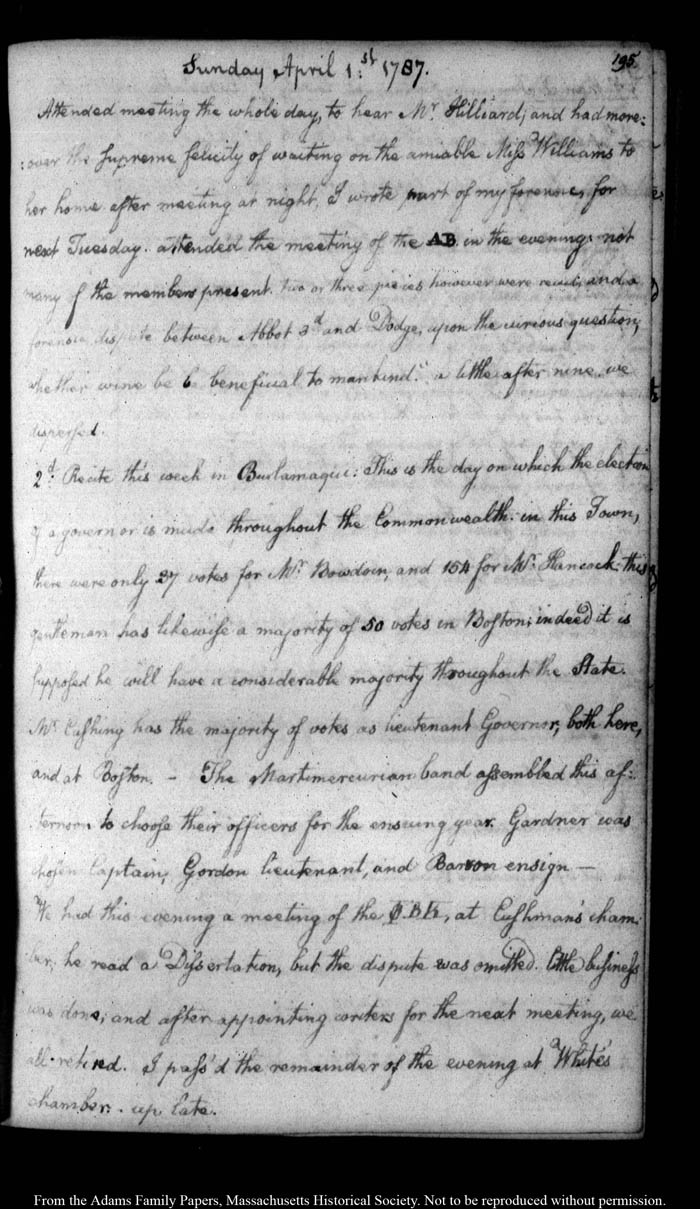 195
Sunday April 1.st 1787.
Attended meeting the whole day, to hear Mr. Hilliard; and had more:
:over the Supreme felicity of waiting on the amiable Miss Williams to
her home after meeting at night, I wrote part of my forensic, for
next Tuesday. attended the meeting of the AB in the evening: not
many of the members present. two or three pieces however were read; and a
forensic dispute between Abbot 3d and Dodge, upon the curious question,
whether wine be beneficial to mankind." a little after nine we
dispersed.
2d. Recite this week in Burlamaqui: This is the day on which the election
of a governor is made throughout the Commonwealth: in this Town,
there were only 27 votes for Mr. Bowdoin, and 154 for Mr. Hancock: this
gentleman has likewise a majority of 50 votes in Boston; indeed it is
supposed he will have a considerable majority throughout the State.
Mr. Cushing has the majority of votes as lieutenant Governor, both here,
and at Boston. — The Martimercurian band assembled this af:
:ternoon to choose their officers for the ensuing year. Gardner was
chosen Captain, Gordon lieutenant, and Barron ensign —
We had this evening a meeting of the ΦBK, at Cushman's cham:
ber; he read a Dissertation, but the dispute was omitted. little business
was done; and after appointing writers for the next meeting, we
all retired. I pass'd the remainder of the evening at White's
chamber: up late.
From the Adams Family Papers, Massachusetts Historical Society. Not to be reproduced without permission.